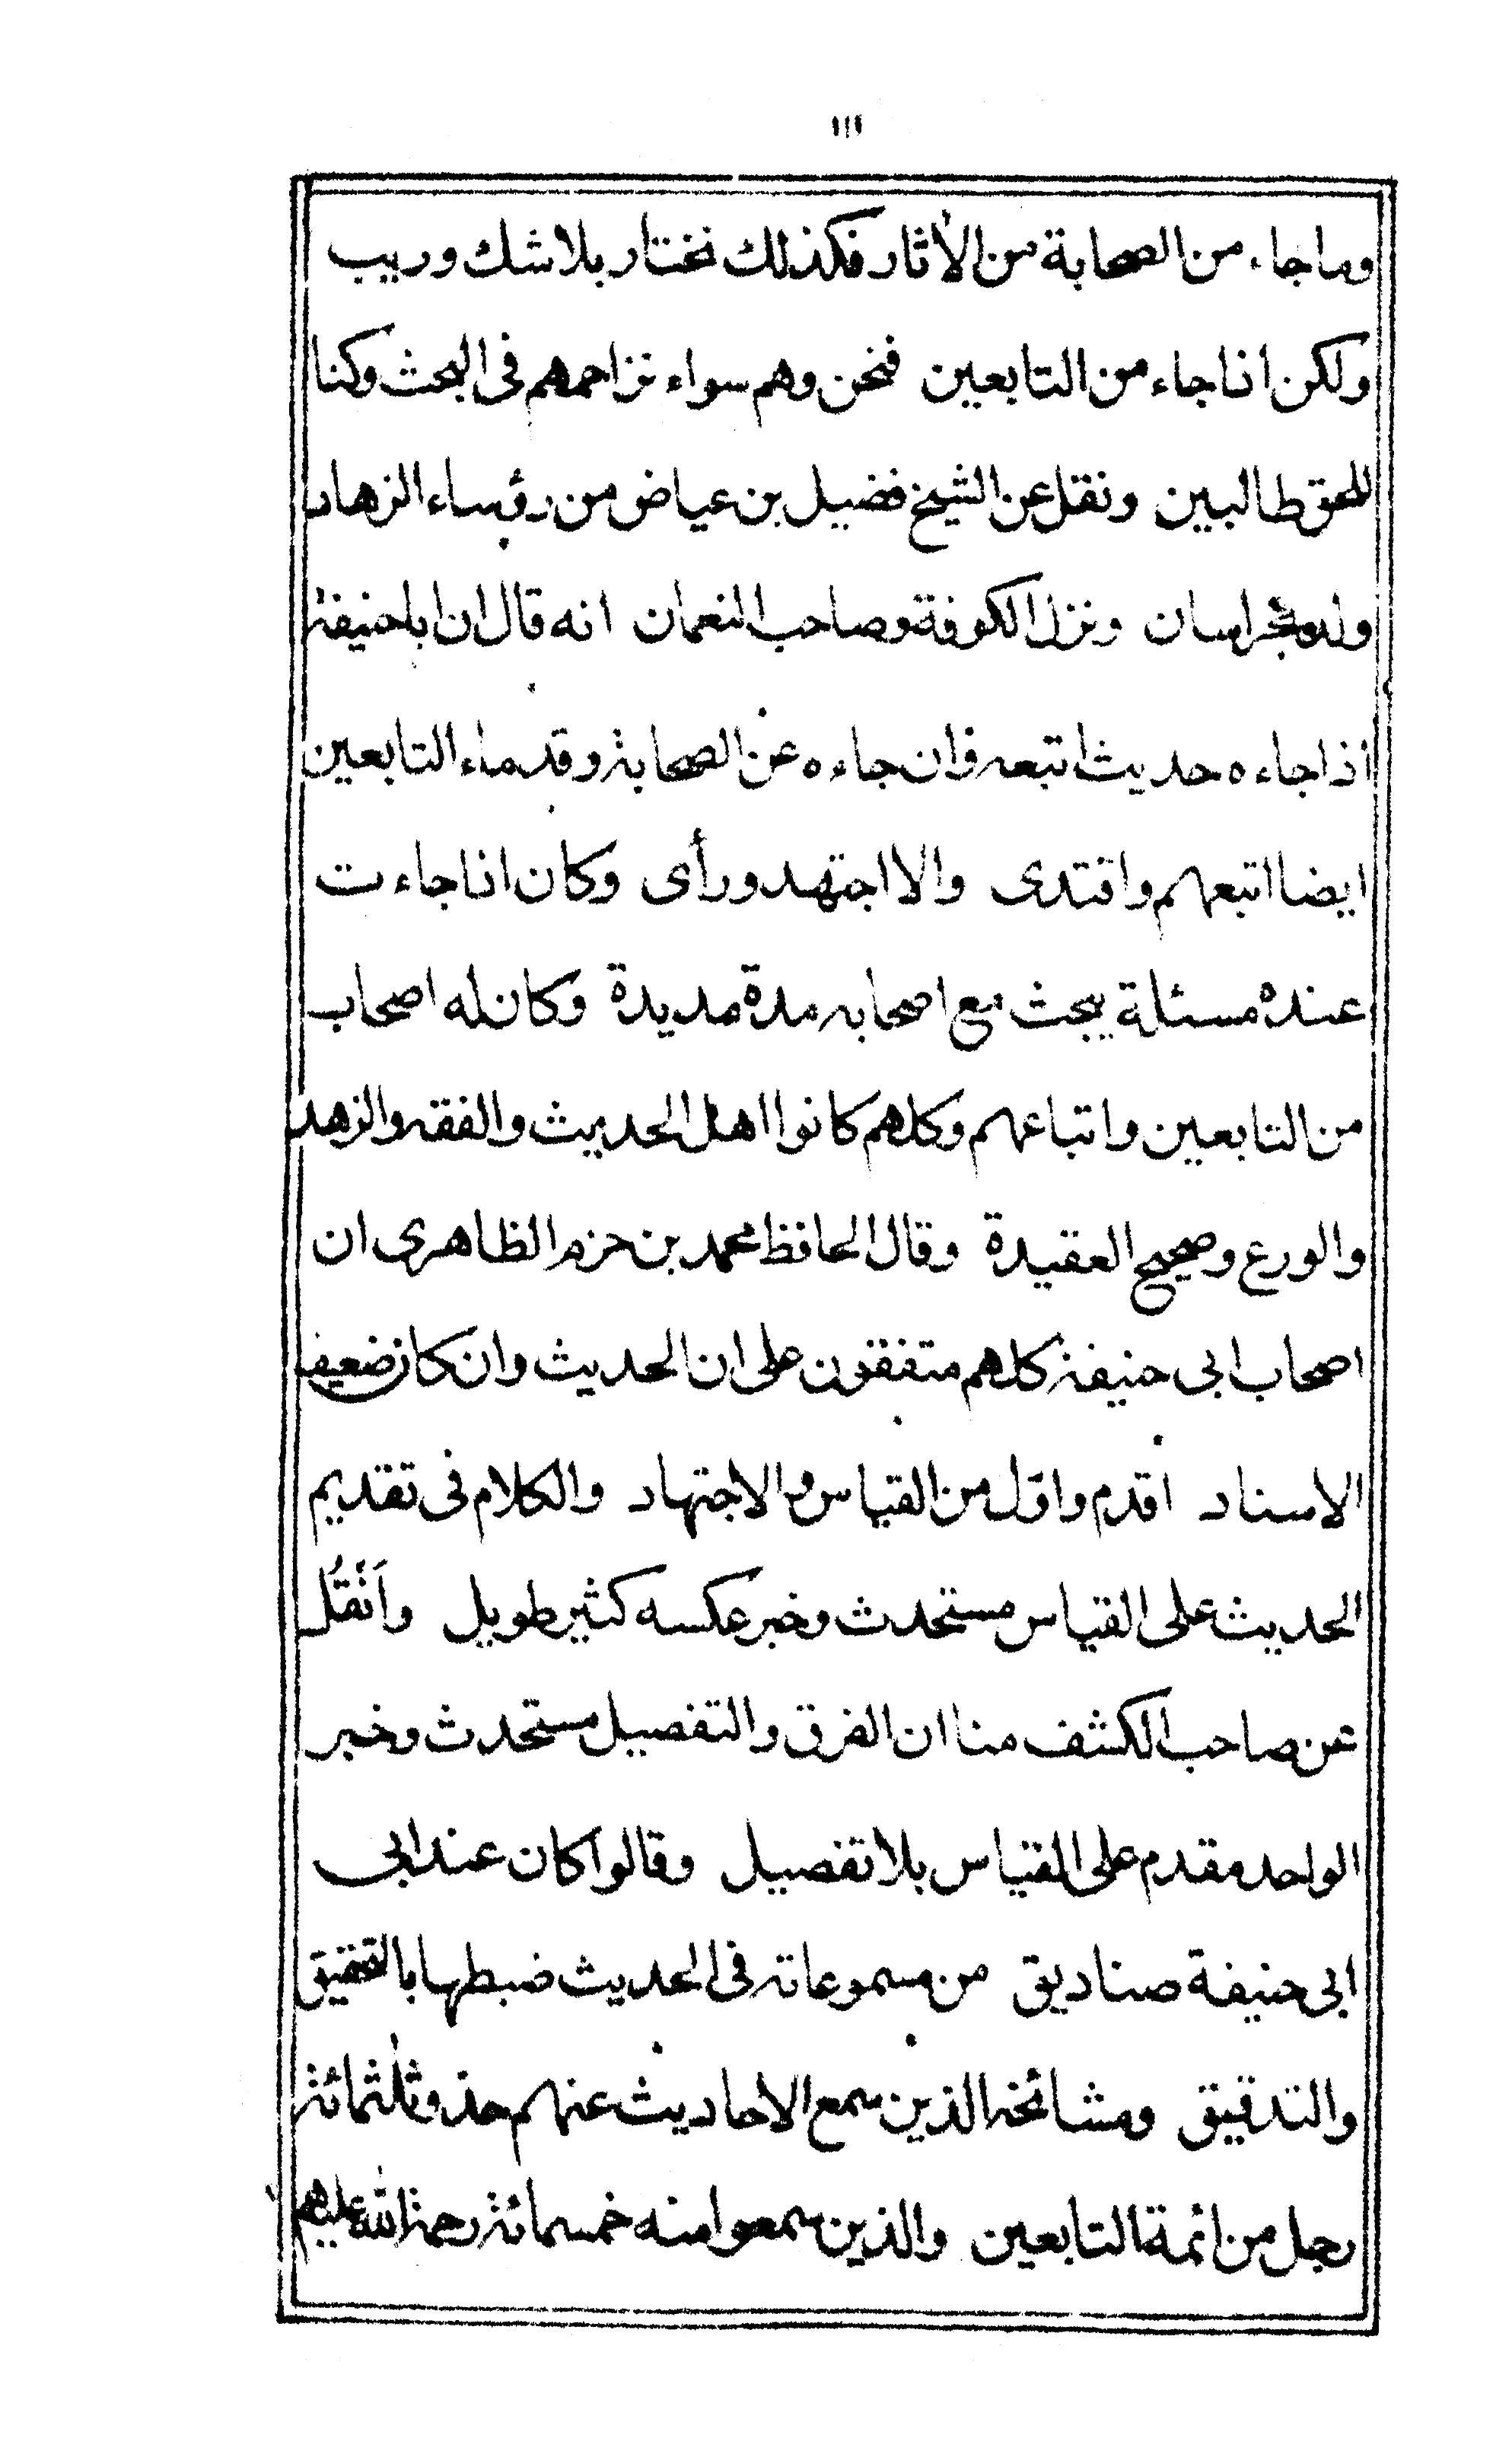 ١١١
وما جاء من الصحابة من الأثار فكذلك نختار بلا شك وريب
ولكن اذا جاء من التابعين فنحن وهم سواء نزاحمهم فى البحث وكنا
للحق طالبين ونقل عن الشيخ فضيل بن عياض من رؤساء الزهاد
ولد بخراسان ونزل الكوفة وصاحب النعمان انه قال ان ابا حنيفة
اذا جاءه حديث اتبعه وان جاءه عن الصحابة وقدماء التابعين
ايضا اتبعهم واقتدى والا اجتهد ورأى وكان اذا جاءت
عنده مسئلة يبحث مع اصحابه مدة مديدة وكان له اصحاب
من التابعين واتباعهم وكلهم كانوا اهل الحديث والفقه والزهد
والورع وصحيح العقيدة وقال الحافظ محمد بن حزم الظاهرى ان
اصحاب ابى حنيفة كلهم متفقون على ان الحديث وان كان ضعيف
الاسناد اقدم واول من القياس والاجتهاد والكلام فى تقديم
الحديث على القياس مستحدث وخبر عكسه كثير طويل وأنقُل
عن صاحب الكشف منا ان الفرق والتفصيل مستحدث وخبر
الواحد مقدم على القياس بلا تفصيل وقالوا كان عند ابى
ابى حنيفة صناديق من مسموعاته فى الحديث ضبطها بالتحقيق
والتدقيق ومشائخه الذين سمع الاحاديث عنهم حذو ثلثمائة
رجل من ائمة التابعين والذين سمعوا منه خمسمائة رحمة الله عليهم